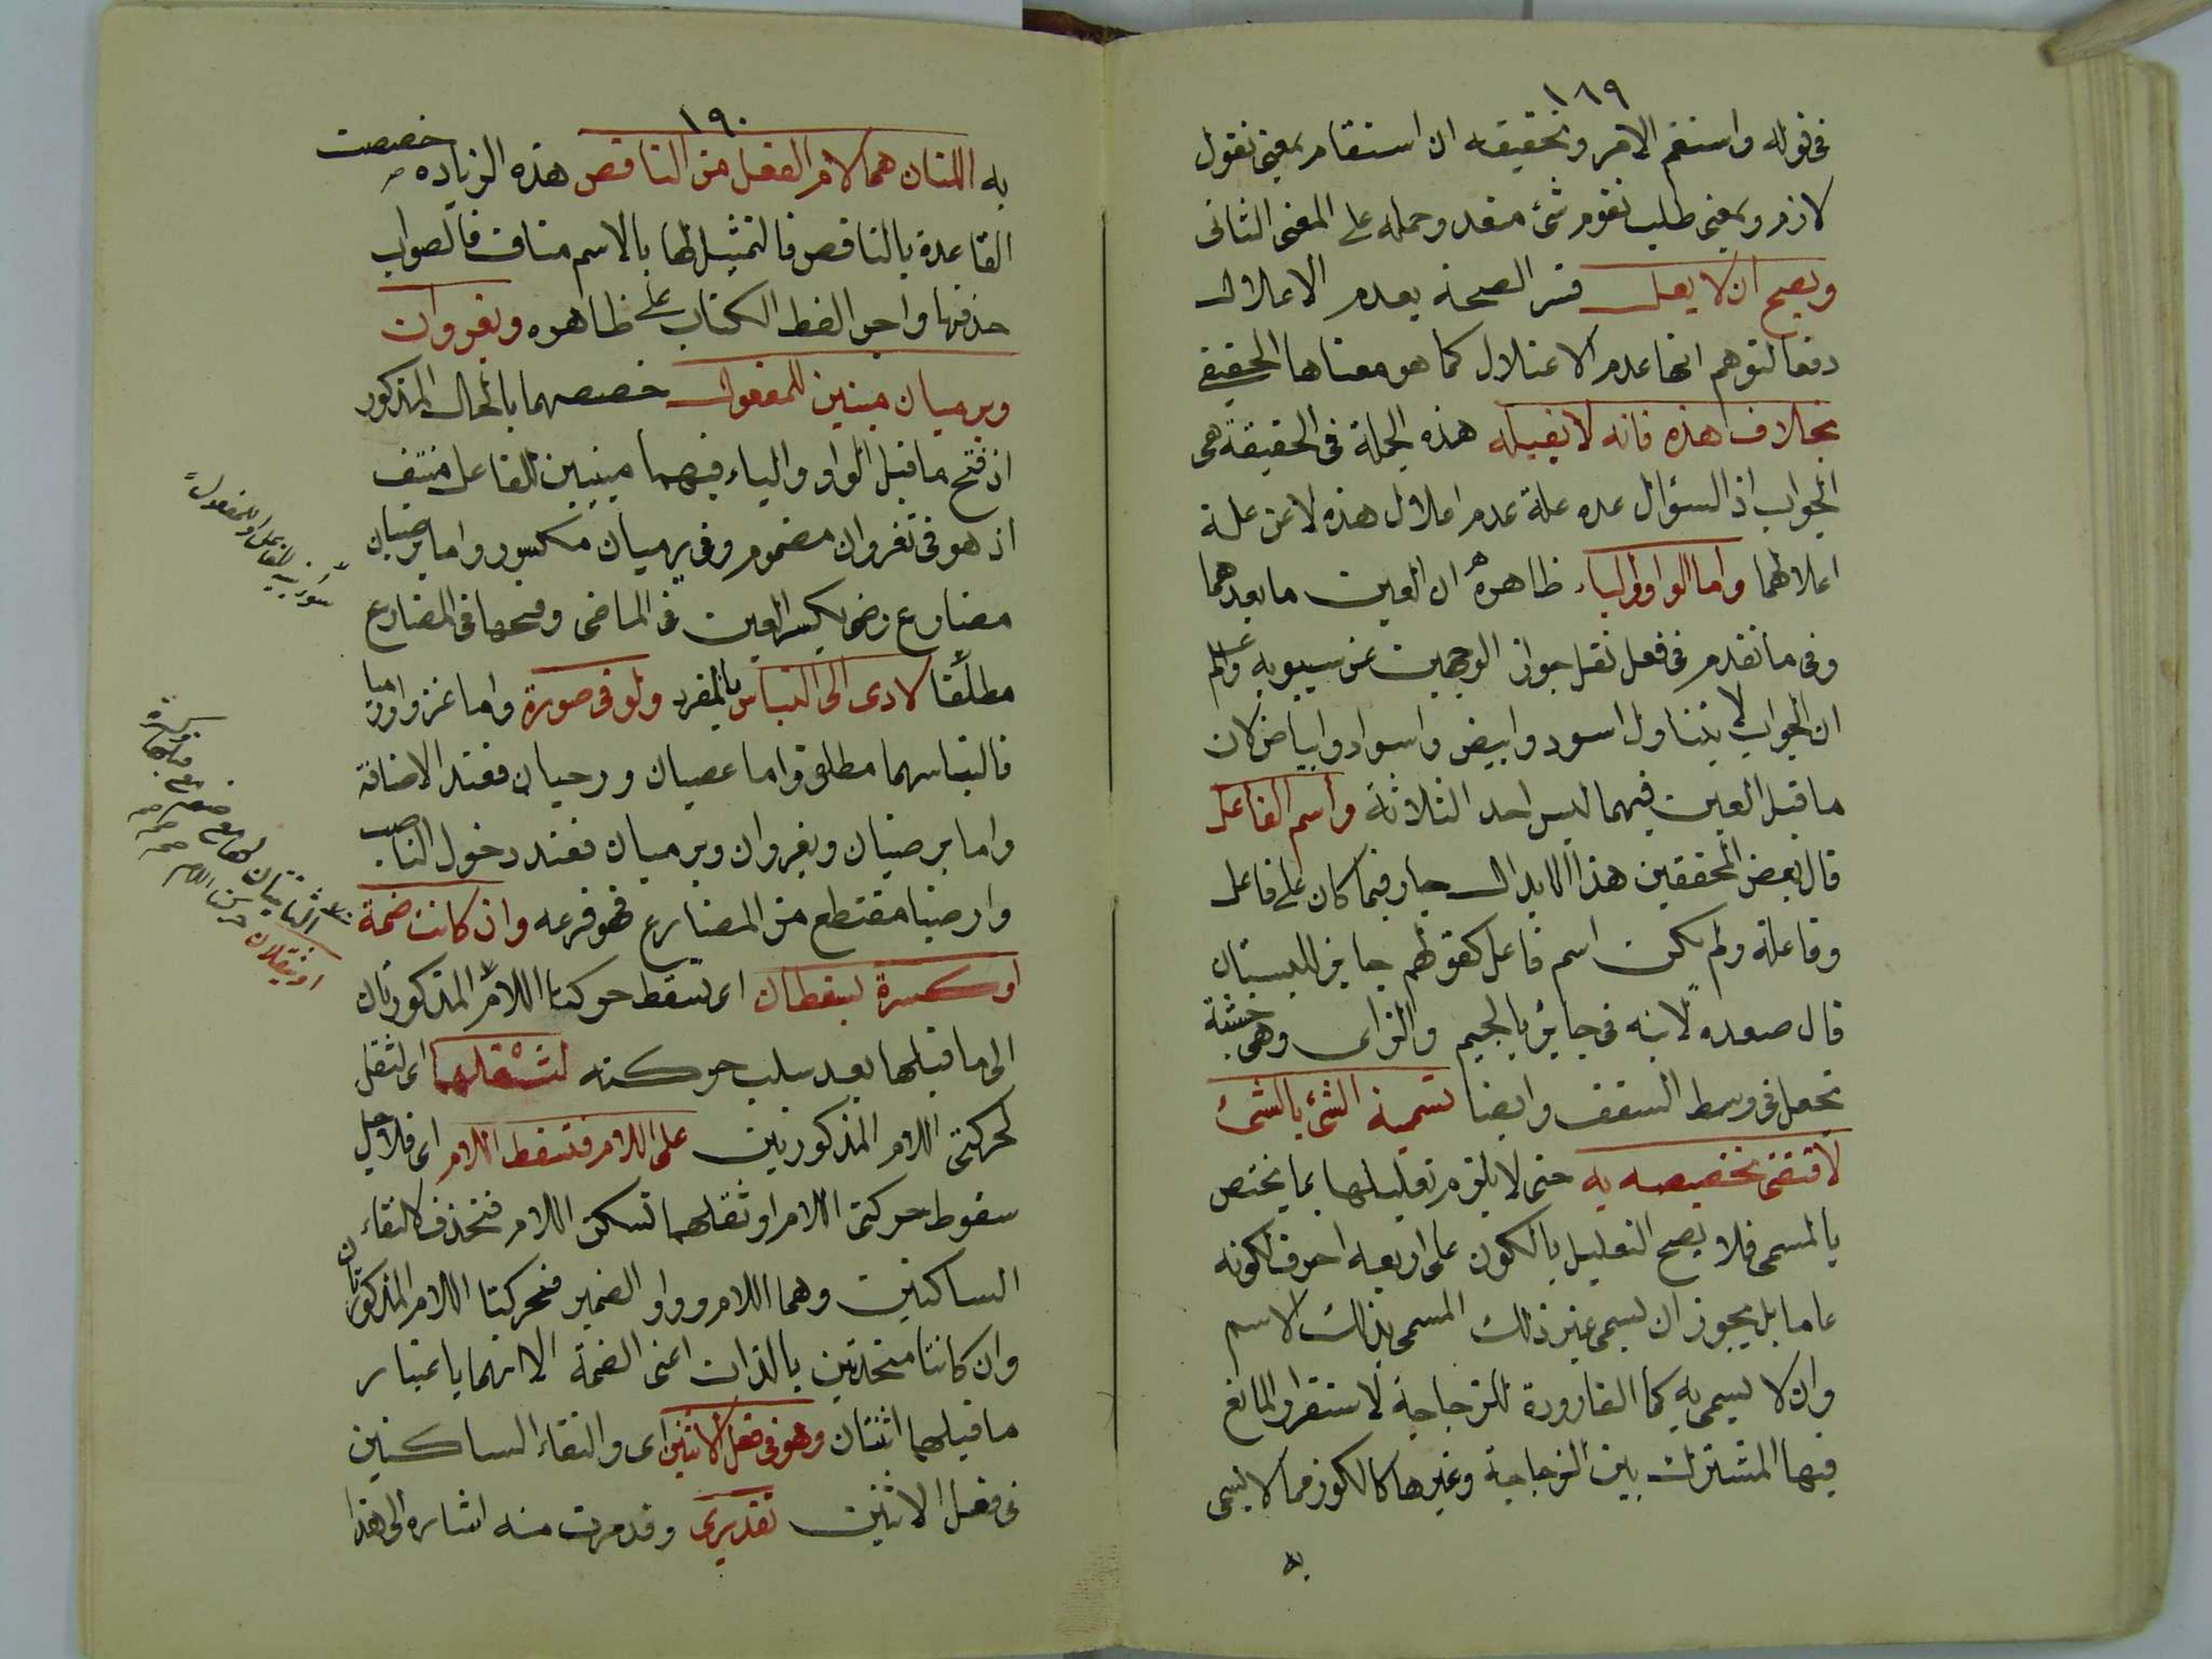 ١٨٩
في قوله واستقم الامر وتحقيقه ان استقام بمعنى تقول
لازم وبمعنى طلب تقوم شئ متعد وحمله على المعنى الثاني
ويصح ان لا يعل فسر الصحة بعدم الاعلال
دفعا لتوهم انها عدم الاعتلال كما هو معناها الحقيقي
بخلاف هذه فانه لا يقبله هذه الجملة في الحقيقة هي
الجواب اذ السؤال عده علة عدم اعلال هذه لا عن علة
اعلالهما واما الواو والياء ظاهره ان العين ما بعدهما
وفي ما تقدم في فعل نقل جواز الوجهين عن سيبويه
ان الجواب لا يتناول اسود وابيض واسواد وابياض لان
ما قبل العين فيهما ليس احد الثلاثة واسم الفاعل
قال بعض المحققين هذا الابدال جار فيما كان على فاعل
وفاعلة ولم يكن اسم فاعل كقولهم جايز للبستان
قال صعده لابنه في جايز بالجيم والزاى وهي خشبة
تجعل في وسط السقف وايضا تسمية الشئ بالشئ
لا تقتضى تخصيصه به حتى لا يلزم تعليلها بما يختص
بالمسمى فلا يصح التعليل بالكون على اربعة احرف لكونه
عاما بل يجوز ان يسمى غير ذلك المسمى بذلك الاسم
وان لا يسمى به كما القارورة للزجاجة لاستقرار المائع
فيها المشترك بين الزجاجة وغيرها كالكوز مما لا يسمى
به
١٩٠
به اللتان هما لام الفعل من الناقص هذه الزيادة خصصت
القاعدة بالناقص فالتمثيل لها بالاسم مناف فالصواب
حذفها واجر الفظ الكتاب على ظاهره ويغزوان
ويرميان مبنيين للمفعول خصصهما بالحال المذكور
اذ فتح ما قبل الواو والياء فيهما مبنيين للفاعل منتف
اذ هو في تغزوان مضموم وفي يرميان مكسور واما يرضيان
مضارع رضى بكسر العين في الماضى وفتحها في المضارع
مطلقا لادى الى التباس بالمفرد ولو في صورة واما غزوا ورميا
فالتباسهما مطلق واما عصيان ورحيان فعند الاضافة
واما يرضيان ويغزوان ويرميان فعند دخول الناصب
وارضيا مقتطع من المضارع فهو فرعه وان كانت ضمة
او كسرة يسقطان اى تسقط حركتا اللام المذكورتان
الى ما قبلها بعد سلب حركته لثقلهما اى لثقل
حركتى اللام المذكورتين على اللام فتسقط اللام اى فلاجل
سقوط حركتى اللام او ثقلهما تسكن اللام فتحذف لالتقاء
الساكنين وهما اللام وواو الضمير فحركتا اللام المذكورتان
وان كانتا متحدتين بالذات اعنى الضمة الا انهما باعتبار
ما قبلهما اثنتان وهو في فعل الاثنين اى والتقاء الساكنين
في فعل الاثنين تقديرى وقد مرت منه اشارة الى هذا
او ينقلان